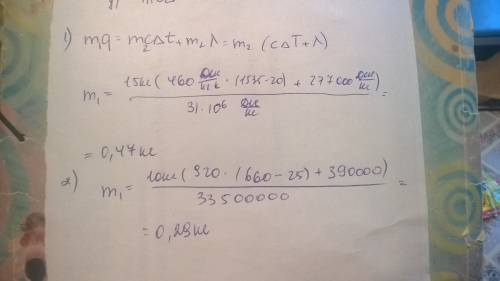 1) m₁q = m₂cΔt + m₂λ = m₂ (cΔT + λ)
m₁ = 15кг (460 Дж/кг к · (1535-20) + 277000 Дж/кг) / 31·10⁶ Дж/кг =
= 0,47кг
2) m₁ = 10кг (920 · (660 - 25) + 390000) / 33500000 =
= 0,29кг